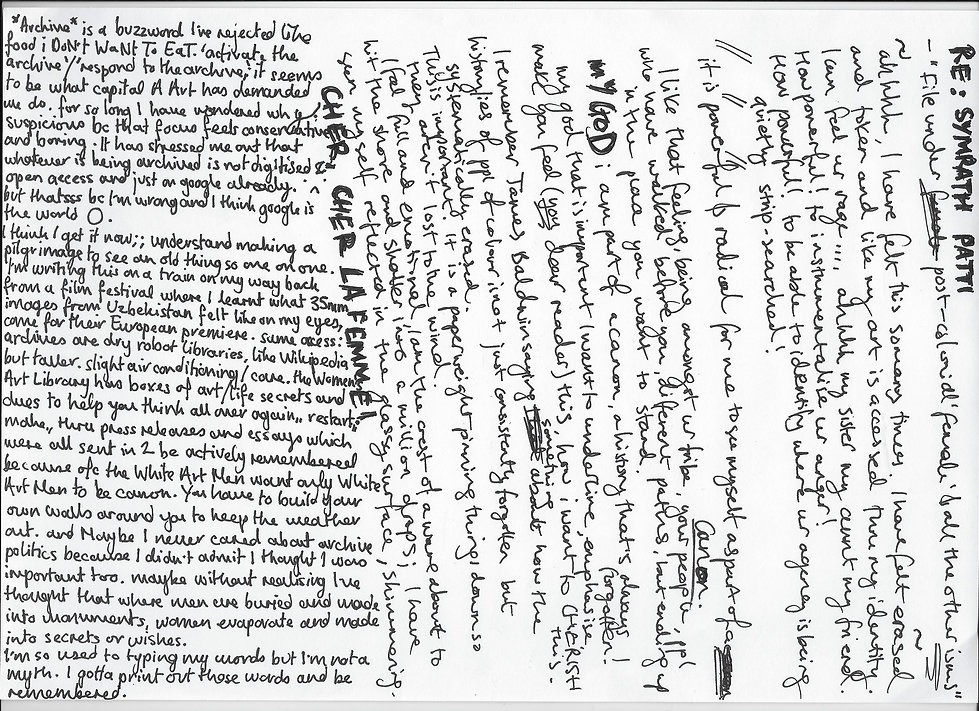 *Archive* is a buzzword I've rejected like
food i DoN't WaNt To EaT. 'activate the
archive'/'respond to the archive', it seems
to be what capital A Art has demanded
we do. for so long I have wondered why?
suspicious bc that focus feels conservative
and boring. It has stressed me out that
whatever is being archived is not digitised &
open access and just on google already.
but thatsss bc I'm wrong and I think google is
the world O.
I think I get it now;; understand making a
pilgrimage to see an old thing so one on one.
I'm writing this on a train on my way back
from a film festival where I learnt what 35mm
images from Uzbekistan felt like on my eyes,
come for their European premiere. same assess:
archives are dry robot libraries, like Wikipedia
but taller. slight air conditioning/cave. the Womens
Art Library has boxes of art/life secrets and
clues to help you think all over again,, restart,,
make,, thru press releases and essays which
were all sent in 2 be actively remembered
because ofc the White Art Men want only White
Art Men to be canon. You have to build your
own walls around you to keep the weather
out. and Maybe I never cared about archive
politics because I didn't admit I thought I was
important too. maybe without realising I've
thought that where men are buried and made
into monuments, women evaporate and made
into secrets or wishes.
I'm so used to typing my words but I'm not a
myth. I gotta print out those words and be
remembered.
RE: SYMRATH PATTI
- "File under post-colonial' female' & all the other isms"
~ ahhhh, I have felt this so many times, I have felt erased
and token and like my art is accessed thru my identity.
I can feel ur rage!!!! ahhhh my sister my aunt my friend.
How powerful! to instrumentalise ur anger!
How powerful! to be able to identify where ur agency is being
quietly strip-searched!
// // //
it is powerful & radical for me to see myself as part of a
Canon.
I like that feeling, being amongst ur tribe, your people, ppl
who have walked before you, different paths, but ending up
in the place you want to stand.
MY GOD i am part of a canon, a history that's always
(forgotten)!
my god that is important I want to underline, emphasise,
make you feel (you, dear reader) this, how i want to CHERISH
this.
I remember James Baldwin saying something about how the
histories of ppl of colour r not just consistently forgotten but
systematically erased.
This is important. it is a paperweight pinning things down so
they aren't lost to the wind.
I feel full and emotional, I am the crest of a wave about to
hit the shore and shatter into a million drops; I have
seen myself reflected in the glassy surface, shimmering.
CHER CHER LA FEMME!